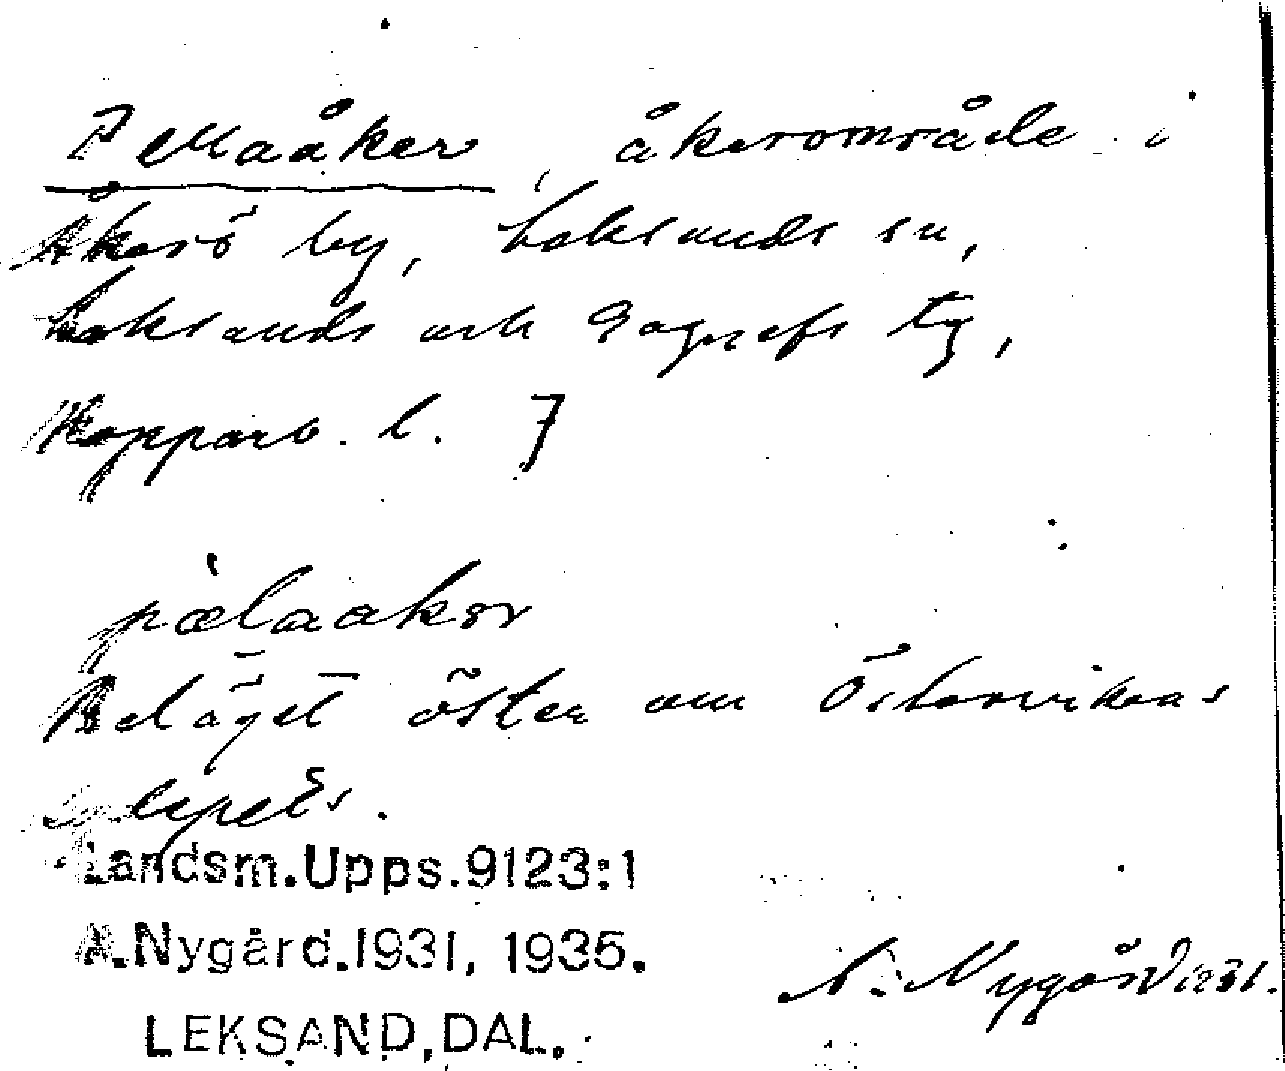 åkerområde i
Åkerö by, Leksands sn,
Leksands och Gagnefs tg,
Kopparb. l. ]
pælaakər
Beläget öster om Östervikens
Landsm.Upps.9123:1
A.Nygård.1931, 1935.
A. Nygård 1931.
LEKSAND, DAL.